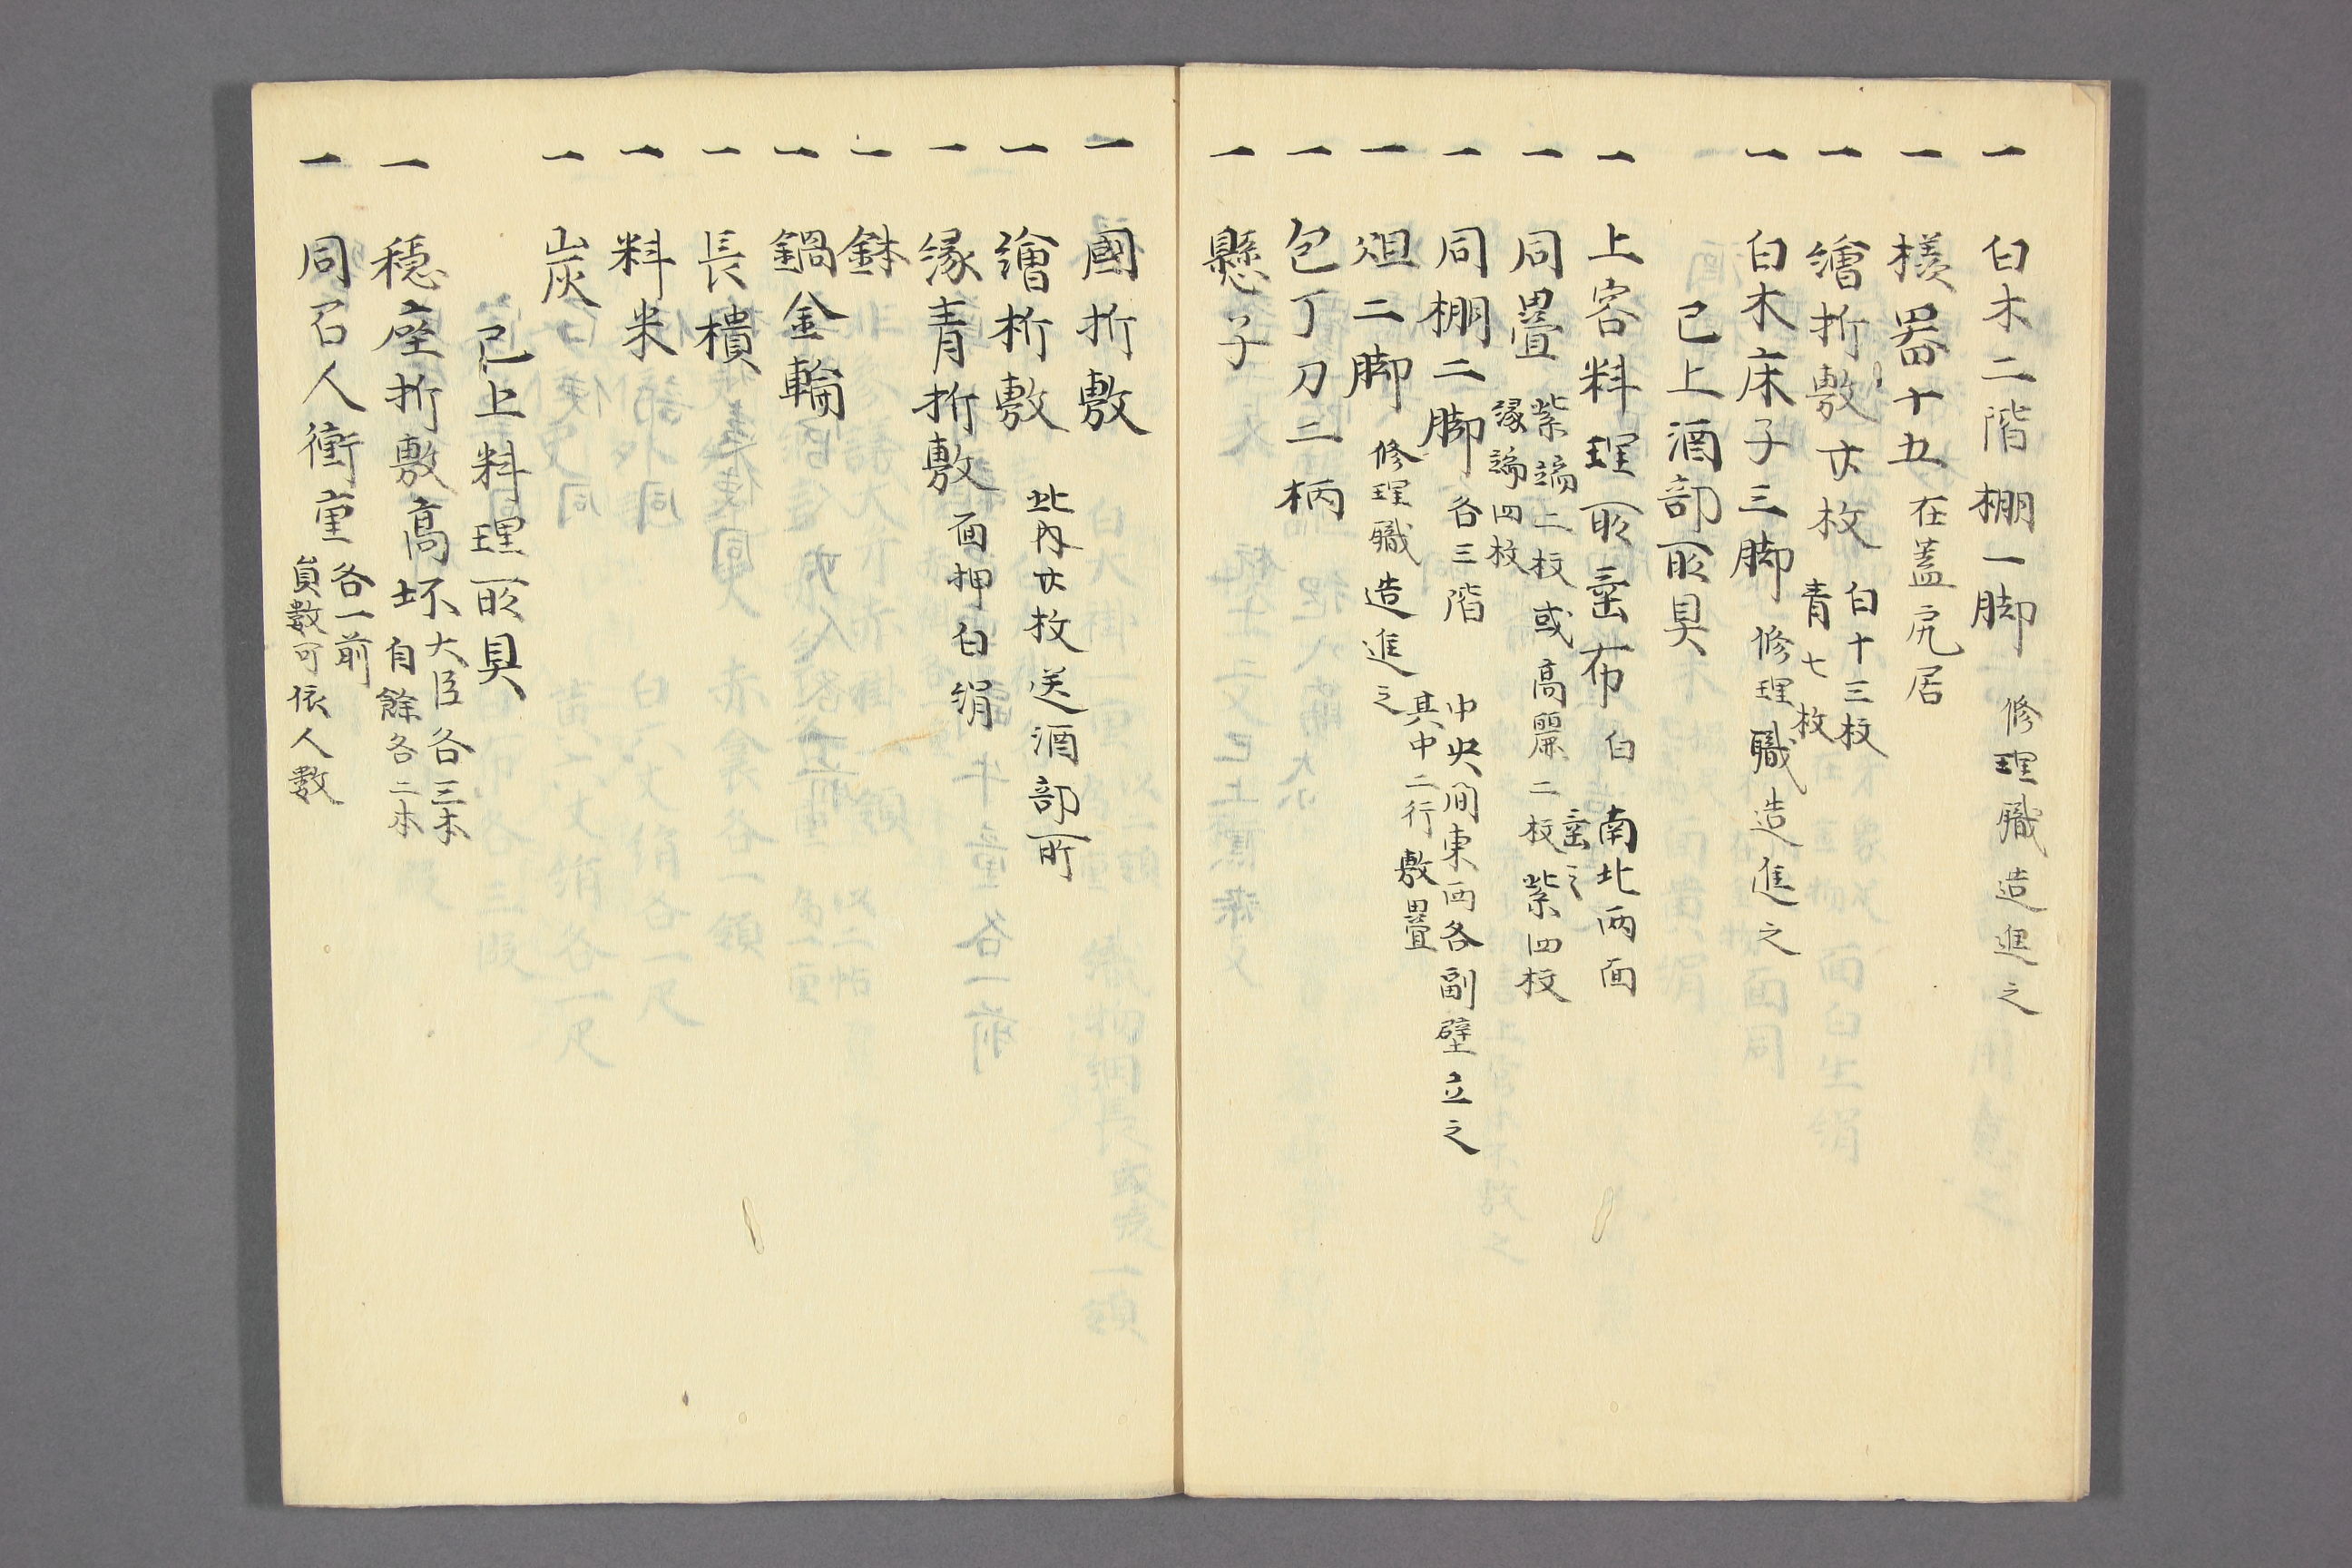 一 白木二階棚一脚 修理職造進之
一 樣器十五 在蓋尻居
一 繪折敷廿枚 白十三枚
青七枚
一 白木床子三脚 修理職造進之
已上酒部所具
一 上客料理所壺布 白 南北両面
壺之
一 同疊 紫端二枚或高麗二枚紫四枚
縁端四枚
一 同棚二脚 各三階 中央間東西各副壁立之
其中二行敷疊
一 俎二脚 修理職造進之
一 包丁刀二柄
一 懸子
一 國折敷
一 繪折敷 此外廿枚送酒部所
一 縁青折敷 面押白絹
一 鉢
一 鍋金輪
一 長樻
一 料米
一 炭
已上料理所具
一 穏座折敷高坏 大臣各三本
自餘各二本
一 同召人衝重 各一前
員數可依人數